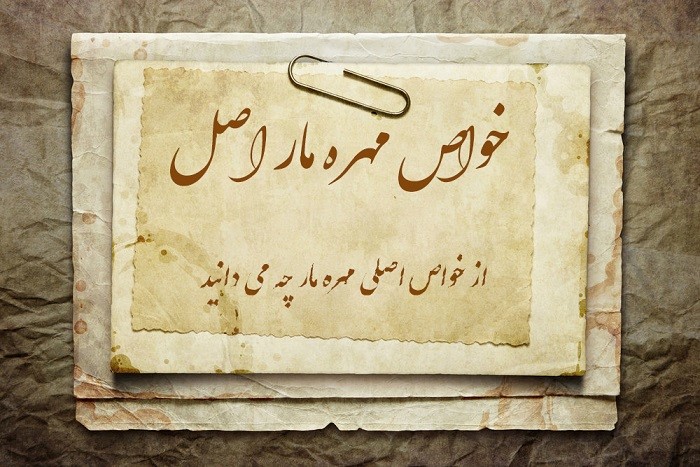 خواص مهره مار اصل
از خواص اصلی مهره مار چه می دانید